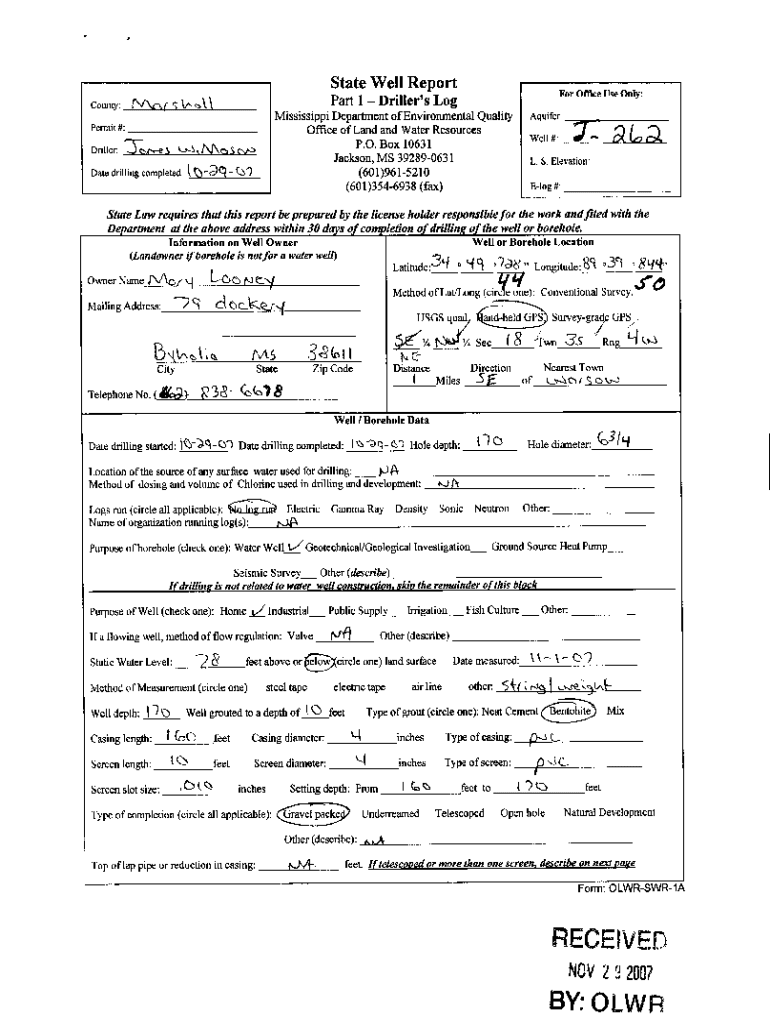 State Well Report
Part 1 – Driller's Log
Mississippi Department of Environmental Quality
Office of Land and Water Resources
P.O. Box 10631
Jackson, MS 39289-0631
(601)961-5210
(601)354-6938 (fax)
County: Marshall
Permit #:
Driller: James W. Mason
Date drilling completed: 10-29-07
For Office Use Only:
Aquifer
Well #: J-262
L. S. Elevation:
E-log #:
State Law requires that this report be prepared by the license holder responsible for the work and filed with the
Department at the above address within 30 days of completion of drilling of the well or borehole.
Information on Well Owner
(Landowner if borehole is not for a water well)
Owner Name Mary Looney
Mailing Address: 79 dockery
Byhalia MS 38611
City State Zip Code
Telephone No. (662) 838-6678
Well or Borehole Location
Latitude: 34 ° 49 ' 728 " Longitude: 89 ° 39 ' 844 "
44 50
Method of Lat/Long (circle one): Conventional Survey,
USGS quad, Hand-held GPS, Survey-grade GPS
SE ¼ NW ¼ Sec 18 Twn 3S Rng 4W
NE
Distance Direction Nearest Town
1 Miles SE of Warsaw
Well / Borehole Data
Date drilling started: 10-29-07 Date drilling completed: 10-29-07 Hole depth: 170 Hole diameter: 6 3/4
Location of the source of any surface water used for drilling: NA
Method of dosing and volume of Chlorine used in drilling and development: NA
Logs run (circle all applicable): No log run Electric Gamma Ray Density Sonic Neutron Other:
Name of organization running log(s): NA
Purpose of borehole (check one): Water Well ✓ Geotechnical/Geological Investigation Ground Source Heat Pump
Seismic Survey Other (describe)
If drilling is not related to water well construction, skip the remainder of this block
Purpose of Well (check one): Home ✓ Industrial Public Supply Irrigation Fish Culture Other:
If a flowing well, method of flow regulation: Valve NA Other (describe)
Static Water Level: 78 feet above or below (circle one) land surface Date measured: 11-1-07
Method of Measurement (circle one) steel tape electric tape air line other: String/weight
Well depth: 170 Well grouted to a depth of 10 feet Type of grout (circle one): Neat Cement Bentonite Mix
Casing length: 160 feet Casing diameter: 4 inches Type of casing: PVC
Screen length: 10 feet Screen diameter: 4 inches Type of screen: PVC
Screen slot size: .010 inches Setting depth: From 160 feet to 170 feet
Type of completion (circle all applicable): Gravel packed Underreamed Telescoped Open hole Natural Development
Other (describe): NA
Top of lap pipe or reduction in casing: NA feet. If telescoped or more than one screen, describe on next page
Form: OLWR-SWR-1A
RECEIVED
NOV 29 2007
BY: OLWR